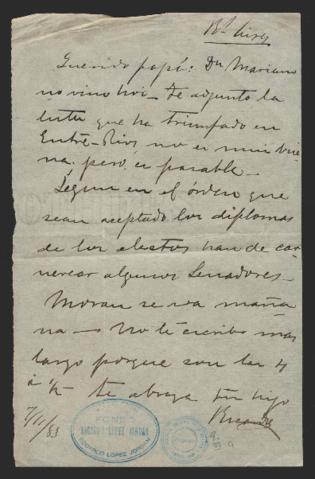 Bs. Aires
Querido papá: Dn Mariano
no vino hoi— te adjunto la
lista que ha triunfado en
Entre-Rios no es mui bue
na. pero es pasable—
Segun en el órden que
sean aceptado los diplomas
de los electos han de ca
algunos Senadores—
Moran se va maña
na — No te escribo mas
largo porque son las 4
á ½ te abraza tu hijo
Ricardo
7/11/83
FONDO
RICARDO LOPEZ JORDAN
LOPEZ JORDAN